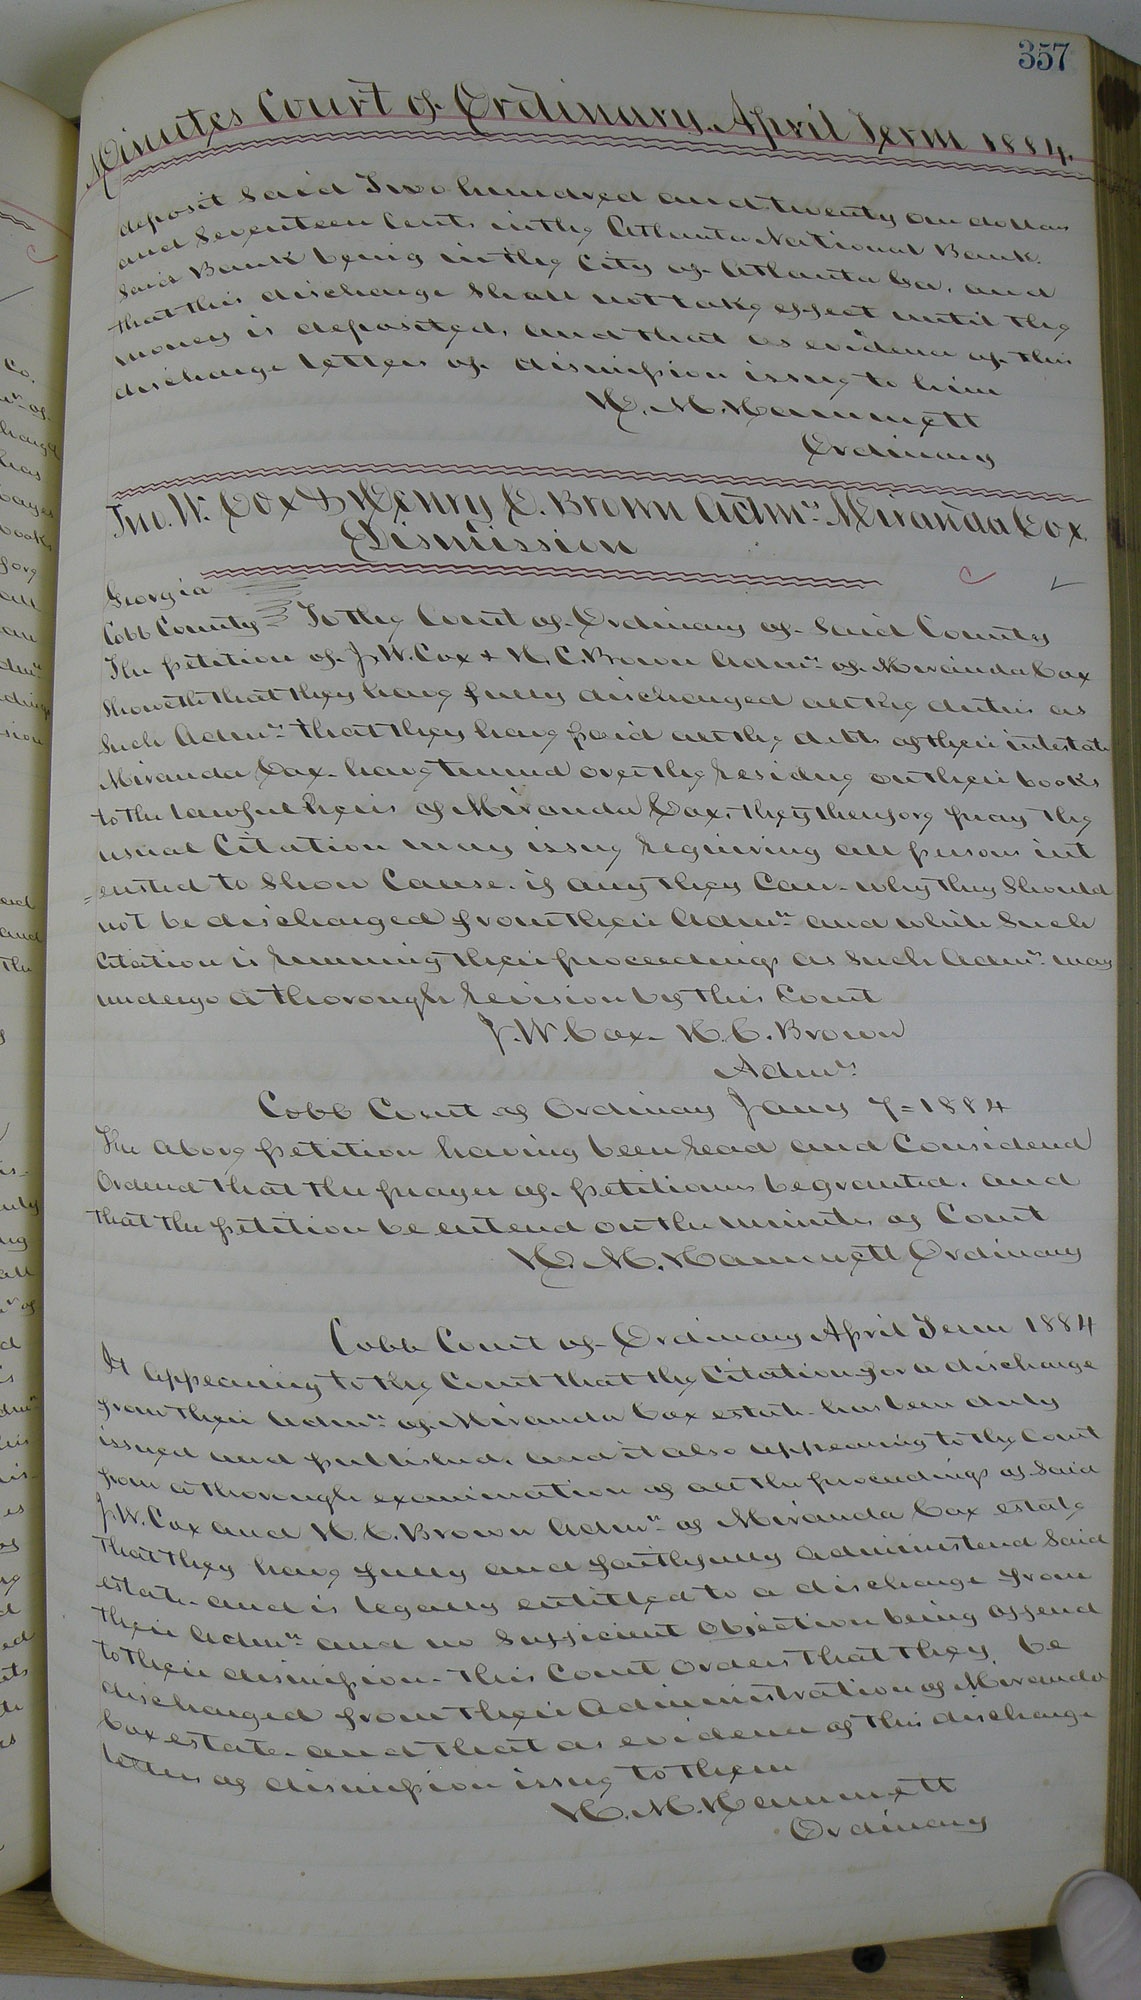 357
Minutes Court of Ordinary April Term 1884.
deposit said Two hundred and twenty one dollars
and Seventeen Cents in the Atlanta National Bank.
Said Bank being in the City of Atlanta Ga. and
that this discharge shall not take effect until the
money is deposited, and that as evidence of this
discharge letters of dismission issue to him
H. M. Hammett
Ordinary
Jno. W. Cox & Henry C. Brown Admrs. Miranda Cox.
Dismission
Georgia
Cobb County To the Court of Ordinary of Said County
The petition of J. W. Cox & H. C. Brown Admrs of Miranda Cox
Showeth that they have fully discharged all the duties as
Such Admrs that they have paid all the debts of their intestate
Miranda Cox. have turned over the residue on their books
to the lawful heirs of Miranda Cox. they therefore pray the
usual Citation may issue requiring all persons int
=erested to Show Cause. if any they Can. why they Should
not be discharged from their Admrn and while Such
Citation is running their proceedings as Such Admrs may
undergo a thorough revision by this Court
J. W. Cox. H. C. Brown
Admrs
Cobb Court of Ordinary Jany 7=1884
The above petition having been read and Considered
Ordered that the prayer of petitioners be granted. and
that the petition be entered on the minutes of Court
H. M. Hammett Ordinary
Cobb Court of Ordinary April Term 1884
It appearing to the Court that the Citation for a discharge
from their Admrn of Miranda Cox estate has been duly
issued and published, and it also appearing to the Court
from a thorough examination of all the proceedings of Said
J. W. Cox and H. C. Brown Admrs of Miranda Cox estate
that they have fully and faithfully administered Said
estate and is legally entitled to a discharge from
their Admrn and no Sufficient Objection being offered
to their dismission. this Court Orders that they be
discharged from their Administration of Miranda
Cox estate. and that as evidence of this discharge
letters of dismission issue to them
H. M. Hammett
Ordinary